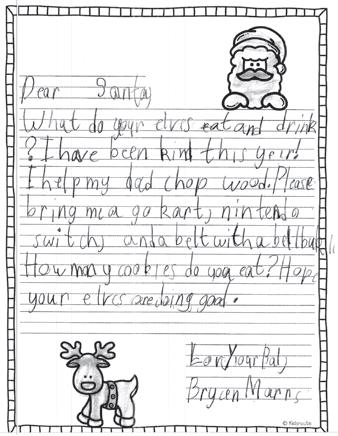 Dear Santa,
What do your elvcs eat and drink
? I have been kind this yeir!
I help my dad chop wood. Please
bring me a go kart, nintendo
switch, and a belt with a bell buckl
How many cookies do you eat? Hope
your elvcs are doing good.
Your Pal,
Brycen
© Kidsroute